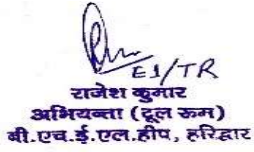 E1/TR
राजेश कुमार
अभियन्ता (टूल रूम)
बी.एच.ई.एल.हीप, हरिद्वार